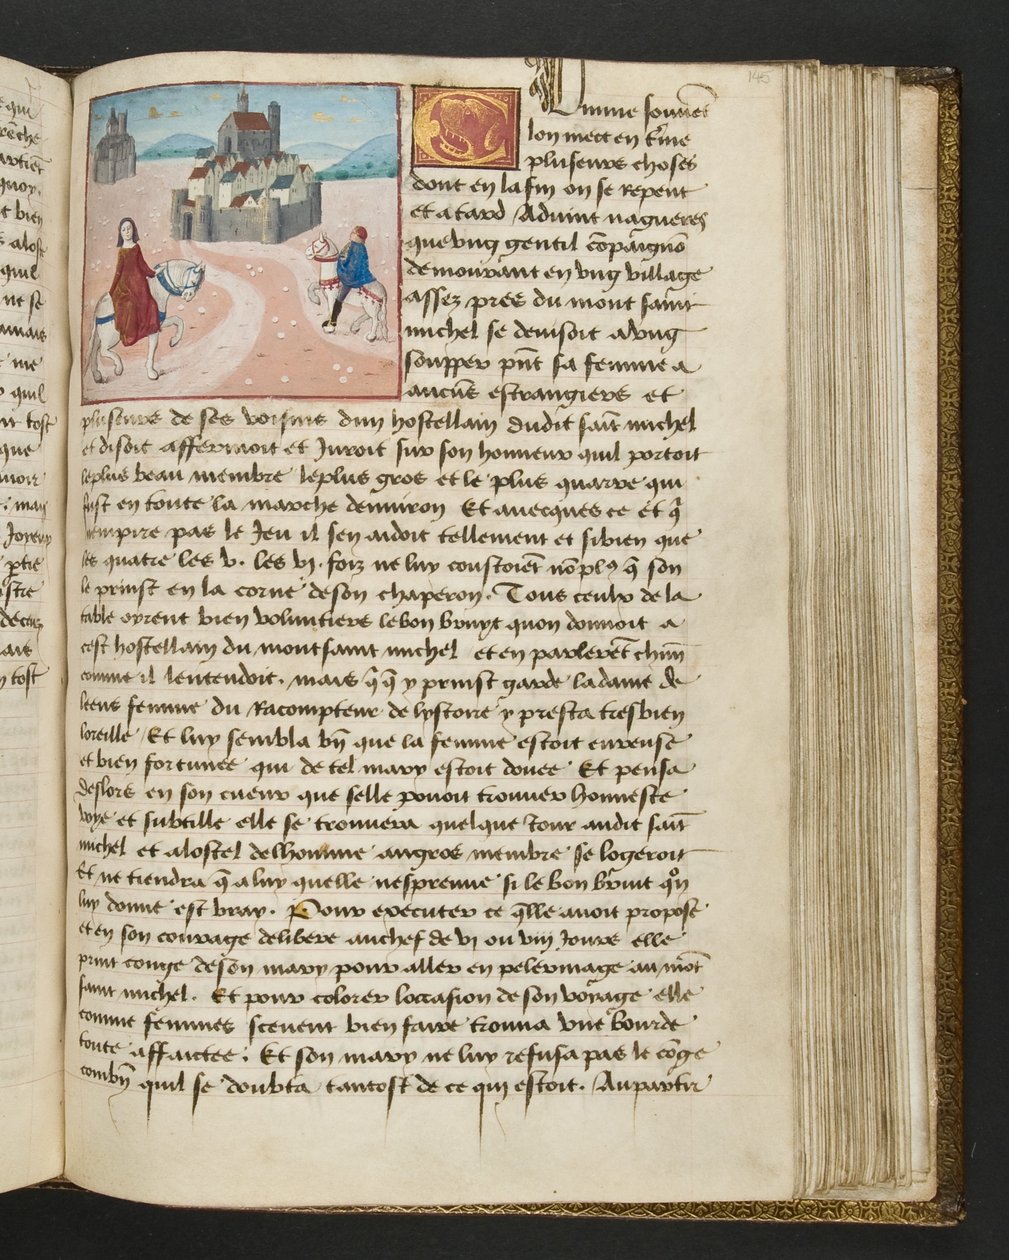 145
Comme souuet
lon mect en t'me
pluseurs choses
dont en la fin on se repent
et a tard Aduint nagueres
que vng gentil cõpaignõ
demourant en vng village
assez pres du mont saint
michel se deuisoit a vng
soupper pñt sa femme a
aucũs estrangiers et
pluseurs de ses voisins dun hostellain dudit saĩt michel
et disoit affermoit et Juroit sur son honneur quil portoit
le plus beau membre le plus gros et le plus quarre qui
fust en toute la marche denuiron Et auecques ce et q̃
nempire pas le Jeu il sen aidoit tellement et si bien que
les quatre les v. les vj. foiz ne luy coustoiẽt nõ plꝯ q̃ son
le prinst en la corne de son chaperon. Tous ceulx de la
table oyrent bien voluntiers le bon bruyt quon donnoit a
cest hostellain du mont saint michel et en parlerẽt chũn
comme il lentendoit. mais q̃ q̃ y prinst garde la dame de
leens femme du Racompteur de lystoire y presta tresbien
loreille Et luy sembla bñ que la femme estoit eureuse
et bien fortunee qui de tel mary estoit douee Et pensa
deslors en son cueur que selle pouoit trouuer honneste
voye et subtille elle se trouuera quelque Jour audit saĩt
michel et a lostel de lhomme au gros membre se logeroit
Et ne tiendra q̃ a luy quelle nespreuue si le bon bruit qͦn
luy donne est vray. Pour executer ce q̃lle auoit propose
et en son courage delibere au chef de vj ou viij Jours elle
print conge de sõn mary pour aller en pelerinage au mõt
saint michel. Et pour colorer loccasion de son voyage elle
comme femmes sceuent bien faire trouua vne bourde
toute affaictee. Et son mary ne luy refusa pas le cõge
combñ quil se doubta tantost de ce qui estoit. Au partir